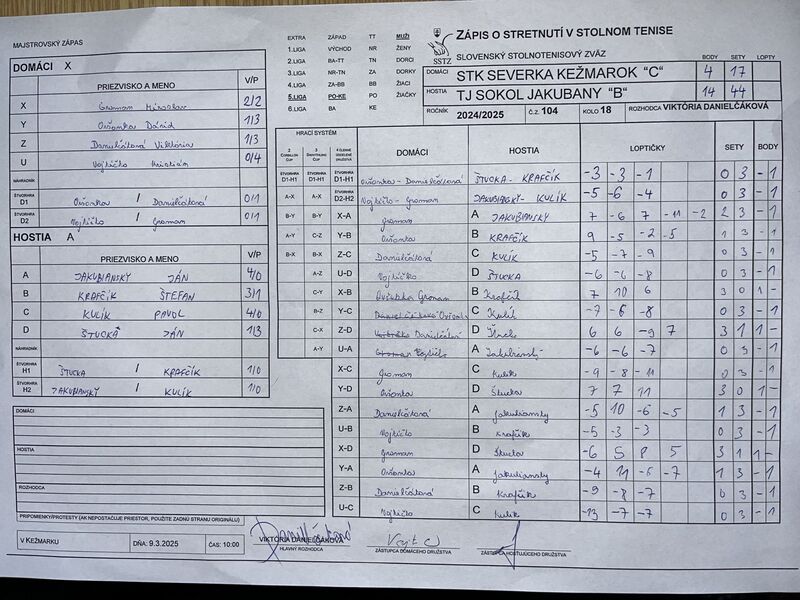 MAJSTROVSKÝ ZÁPAS
EXTRA ZÁPAD TT MUŽI
1.LIGA VÝCHOD NR ŽENY
2.LIGA BA-TT TN DORCI
3.LIGA NR-TN ZA DORKY
4.LIGA ZA-BB BB ŽIACI
5.LIGA PO-KE PO ŽIAČKY
6.LIGA BA KE
SSTZ
ZÁPIS O STRETNUTÍ V STOLNOM TENISE
SLOVENSKÝ STOLNOTENISOVÝ ZVÄZ
BODY SETY LOPTY
DOMÁCI STK SEVERKA KEŽMAROK "C" 4 17
HOSTIA TJ SOKOL JAKUBANY "B" 14 44
ROČNÍK 2024/2025 Č.Z. 104 KOLO 18 ROZHODCA VIKTÓRIA DANIELČÁKOVÁ
DOMÁCI X
PRIEZVISKO A MENO V/P
X Groman Miroslav 2/2
Y Ovšonka Dávid 1/3
Z Danielčáková Viktória 1/3
U Vojtičko Kristián 0/4
NÁHRADNÍK
ŠTVORHRA D1 Ovšonka / Danielčáková 0/1
ŠTVORHRA D2 Vojtičko / Groman 0/1
HOSTIA A
PRIEZVISKO A MENO V/P
A JAKUBIANSKY JÁN 4/0
B KRAFČÍK ŠTEFAN 3/1
C KULÍK PAVOL 4/0
D ŠTUCKA JÁN 1/3
NÁHRADNÍK
ŠTVORHRA H1 ŠTUCKA / KRAFČÍK 1/0
ŠTVORHRA H2 JAKUBIANSKÝ / KULÍK 1/0
DOMÁCI
HOSTIA
ROZHODCA
PRIPOMIENKY/PROTESTY (AK NEPOSTAČUJE PRIESTOR, POUŽITE ZADNÚ STRANU ORIGINÁLU)
V KEŽMARKU DŇA: 9.3.2025 ČAS: 10:00
HRACÍ SYSTÉM DOMÁCI HOSTIA LOPTIČKY SETY BODY
2 CORBILLON CUP 3 SWAYTHLING CUP 4 ČLENNÉ ODDELENÉ DRUŽSTVÁ
ŠTVORHRA D1-H1 ŠTVORHRA D1-H1 ŠTVORHRA D1-H1 Ovšonka - Danielčáková ŠTUCKA - KRAFČÍK -3 -3 -1 0 3 -1
A-X A-X ŠTVORHRA D2-H2 Vojtičko - Groman JAKUBIANSKÝ - KULÍK -5 -6 -4 0 3 -1
B-Y B-Y X-A Groman A JAKUBIANSKÝ 7 -6 7 -11 -2 2 3 -1
A-Y C-Z Y-B Ovšonka B KRAFČÍK 9 -5 -2 -5 1 3 -1
B-X B-X Z-C Danielčáková C KULÍK -5 -7 -9 0 3 -1
A-Z U-D Vojtičko D ŠTUCKA -6 -6 -8 0 3 -1
C-Y X-B Groman B Krafčík 7 10 6 3 0 1-
B-Z Y-C Ovšonka C Kulík -7 -6 -8 0 3 -1
C-X Z-D Danielčáková D Štucka 6 6 -9 7 3 1 1-
A-Y U-A Vojtičko A Jakubiansky -6 -6 -7 0 3 -1
X-C Groman C Kulík -9 -8 -11 0 3 -1
Y-D Ovšonka D Štucka 7 7 11 3 0 1-
Z-A Danielčáková A Jakubiansky -5 10 -6 -5 1 3 -1
U-B Vojtičko B Krafčík -5 -3 -3 0 3 -1
X-D Groman D Štucka -6 5 8 5 3 1 1-
Y-A Ovšonka A Jakubiansky -4 11 -6 -7 1 3 -1
Z-B Danielčáková B Krafčík -9 -8 -7 0 3 -1
U-C Vojtičko C Kulík -13 -7 -7 0 3 -1
VIKTÓRIA DANIELČÁKOVÁ
HLAVNÝ ROZHODCA
ZÁSTUPCA DOMÁCEHO DRUŽSTVA
ZÁSTUPCA HOSŤUJÚCEHO DRUŽSTVA